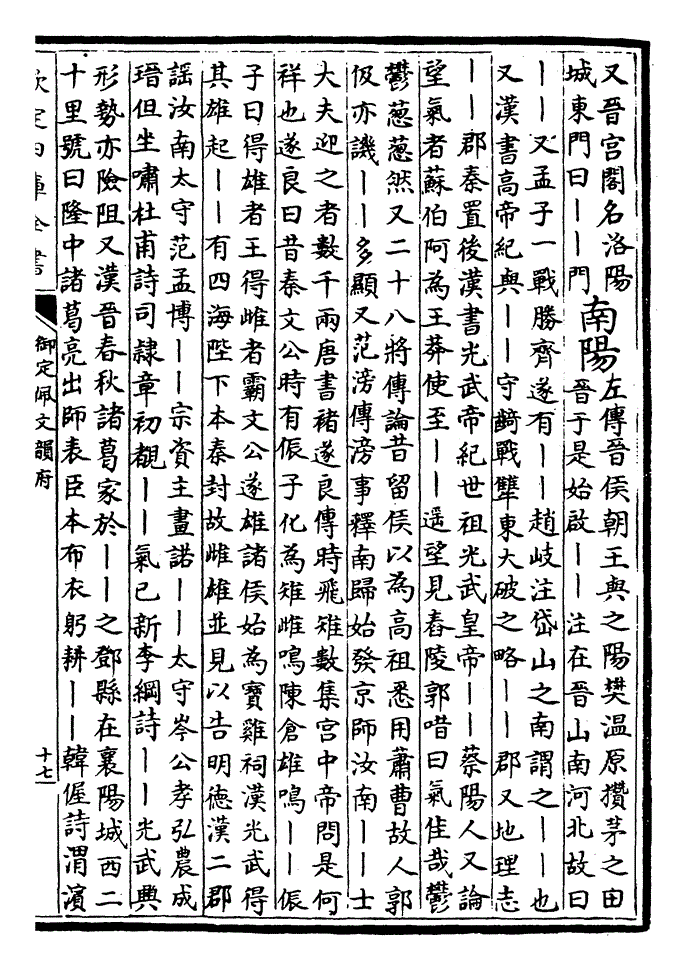 又晉宫閣名洛陽
城東門曰――門
南陽
左傳晉侯朝王與之陽樊温原攢茅之田
晉于是始啟――注在晉山南河北故曰
――又孟子一戰勝齊遂有――趙岐注岱山之南謂之――也
又漢書高帝紀與――守齮戰犨東大破之略――郡又地理志
――郡秦置後漢書光武帝紀世祖光武皇帝――蔡陽人又論
望氣者蘇伯阿為王莽使至――遥望見舂陵郭唶曰氣佳哉鬱
鬱葱葱然又二十八將傳論昔留侯以為高祖悉用蕭曹故人郭
伋亦譏――多顯又范滂傳滂事釋南歸始發京師汝南――士
大夫迎之者數千兩唐書褚遂良傳時飛雉數集宫中帝問是何
祥也遂良曰昔秦文公時有侲子化為雉雌鳴陳倉雄鳴――侲
子曰得雄者王得雌者霸文公遂雄諸侯始為寶雞祠漢光武得
其雄起――有四海陛下本秦封故雌雄並見以告明德漢二郡
謡汝南太守范孟博――宗資主畫諾――太守岑公孝弘農成
瑨但坐嘯杜甫詩司隷章初覩――氣已新李綱詩――光武興
形勢亦險阻又漢晉春秋諸葛家於――之鄧縣在襄陽城西二
十里號曰隆中諸葛亮出師表臣本布衣躬耕――韓偓詩渭濵
欽定四庫全書
御定佩文韻府
十七